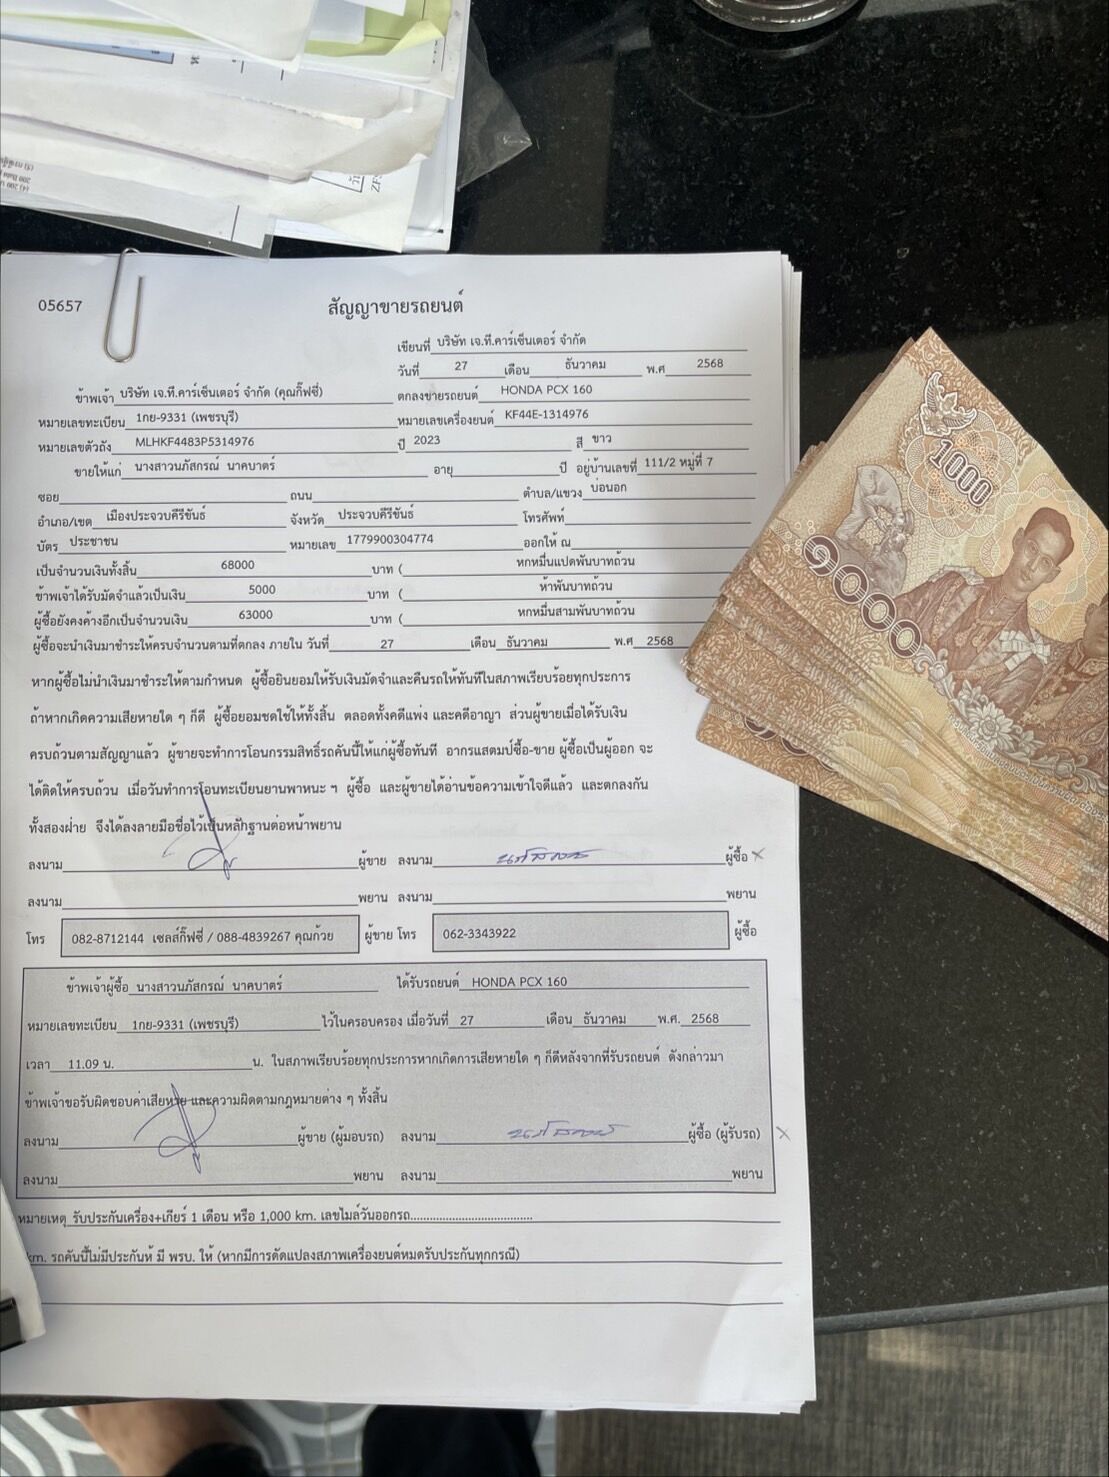 05657
สัญญาขายรถยนต์
เขียนที่ บริษัท เจ.ที.คาร์เซ็นเตอร์ จำกัด
วันที่ 27 เดือน ธันวาคม พ.ศ 2568
ข้าพเจ้า บริษัท เจ.ที.คาร์เซ็นเตอร์ จำกัด (คุณกิ๊ฟซี่) ตกลงขายรถยนต์ HONDA PCX 160
หมายเลขทะเบียน 1กย-9331 (เพชรบุรี) หมายเลขเครื่องยนต์ KF44E-1314976
หมายเลขตัวถัง MLHKF4483P5314976 ปี 2023 สี ขาว
ขายให้แก่ นางสาวนภัสกรณ์ นาคบาตร์ อายุ ปี อยู่บ้านเลขที่ 111/2 หมู่ที่ 7
ซอย ถนน ตำบล/แขวง บ่อนอก
อำเภอ/เขต เมืองประจวบคีรีขันธ์ จังหวัด ประจวบคีรีขันธ์ โทรศัพท์
บัตร ประชาชน หมายเลข 1779900304774 ออกให้ ณ
เป็นจำนวนเงินทั้งสิ้น 68000 บาท ( หกหมื่นแปดพันบาทถ้วน
ข้าพเจ้าได้รับมัดจำแล้วเป็นเงิน 5000 บาท ( ห้าพันบาทถ้วน
ผู้ซื้อยังคงค้างอีกเป็นจำนวนเงิน 63000 บาท ( หกหมื่นสามพันบาทถ้วน
ผู้ซื้อจะนำเงินมาชำระให้ครบจำนวนตามที่ตกลง ภายใน วันที่ 27 เดือน ธันวาคม พ.ศ 2568
หากผู้ซื้อไม่นำเงินมาชำระให้ตามกำหนด ผู้ซื้อยินยอมให้ริบเงินมัดจำและคืนรถให้ทันทีในสภาพเรียบร้อยทุกประการ
ถ้าหากเกิดความเสียหายใด ๆ ก็ดี ผู้ซื้อยอมชดใช้ให้ทั้งสิ้น ตลอดทั้งคดีแพ่ง และคดีอาญา ส่วนผู้ขายเมื่อได้รับเงิน
ครบถ้วนตามสัญญาแล้ว ผู้ขายจะทำการโอนกรรมสิทธิ์รถคันนี้ให้แก่ผู้ซื้อทันที อากรแสตมป์ซื้อ-ขาย ผู้ซื้อเป็นผู้ออก จะ
ได้ติดให้ครบถ้วน เมื่อวันทำการโอนทะเบียนยานพาหนะ ฯ ผู้ซื้อ และผู้ขายได้อ่านข้อความเข้าใจดีแล้ว และตกลงกัน
ทั้งสองฝ่าย จึงได้ลงลายมือชื่อไว้เป็นหลักฐานต่อหน้าพยาน
ลงนาม ผู้ขาย ลงนาม ผู้ซื้อ
ลงนาม พยาน ลงนาม พยาน
โทร 082-8712144 เซลส์กิ๊ฟซี่ / 088-4839267 คุณก้วย ผู้ขาย โทร 062-3343922 ผู้ซื้อ
ข้าพเจ้าผู้ซื้อ นางสาวนภัสกรณ์ นาคบาตร์ ได้รับรถยนต์ HONDA PCX 160
หมายเลขทะเบียน 1กย-9331 (เพชรบุรี) ไว้ในครอบครอง เมื่อวันที่ 27 เดือน ธันวาคม พ.ศ. 2568
เวลา 11.09 น. น. ในสภาพเรียบร้อยทุกประการหากเกิดการเสียหายใด ๆ ก็ดีหลังจากที่รับรถยนต์ ดังกล่าวมา
ข้าพเจ้าขอรับผิดชอบค่าเสียหาย และความผิดตามกฎหมายต่าง ๆ ทั้งสิ้น
ลงนาม ผู้ขาย (ผู้มอบรถ) ลงนาม ผู้ซื้อ (ผู้รับรถ)
ลงนาม พยาน ลงนาม พยาน
หมายเหตุ รับประกันเครื่อง+เกียร์ 1 เดือน หรือ 1,000 km. เลขไมล์วันออกรถ....................................
km. รถคันนี้ไม่มีประกันห้ มี พรบ. ให้ (หากมีการดัดแปลงสภาพเครื่องยนต์หมดรับประกันทุกกรณี)
1000
๑๐๐๐